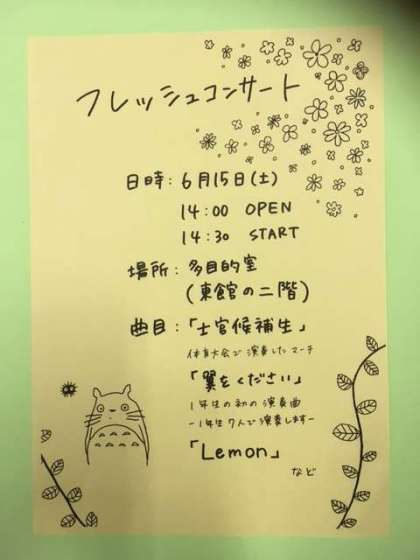 フレッシュコンサート
日時：6月15日(土)
14：00 OPEN
14：30 START
場所：多目的室
(東館の二階)
曲目：「士官候補生」
体育大会で演奏したマーチ
「翼をください」
1年生の初の演奏曲
-1年生7人で演奏します-
「Lemon」
など